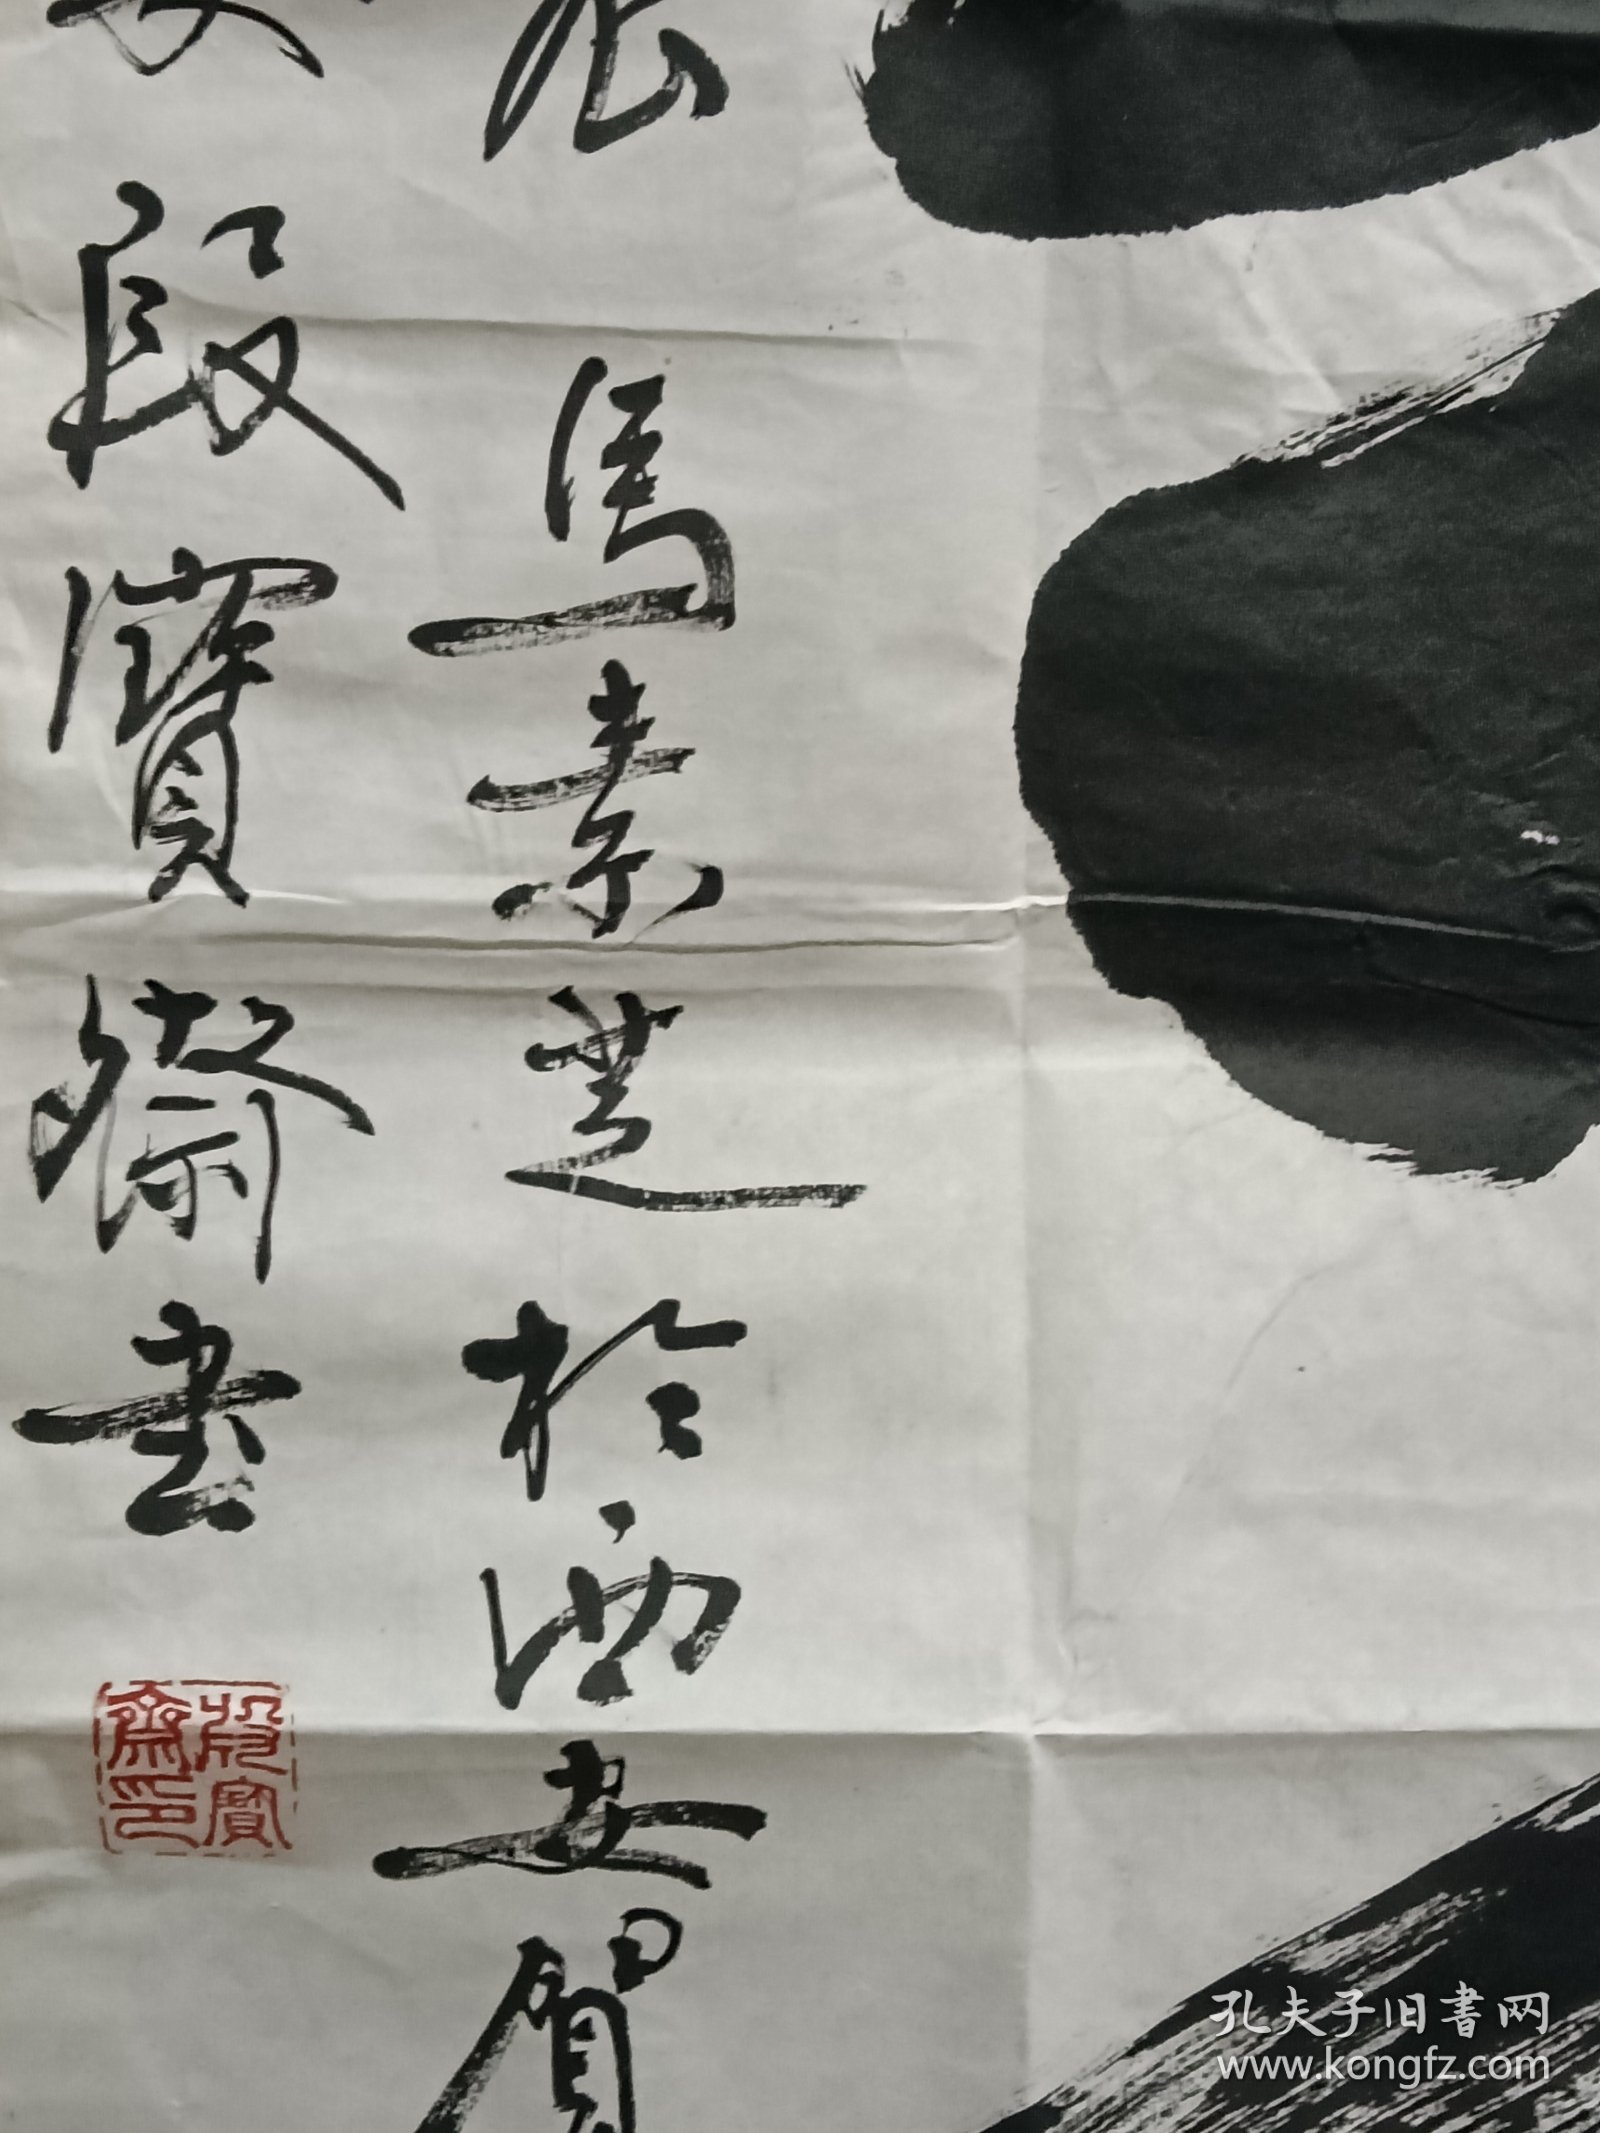 馬素芝於西安賀
段寶齋書
段寶齋印
孔夫子旧书网
www.kongfz.com